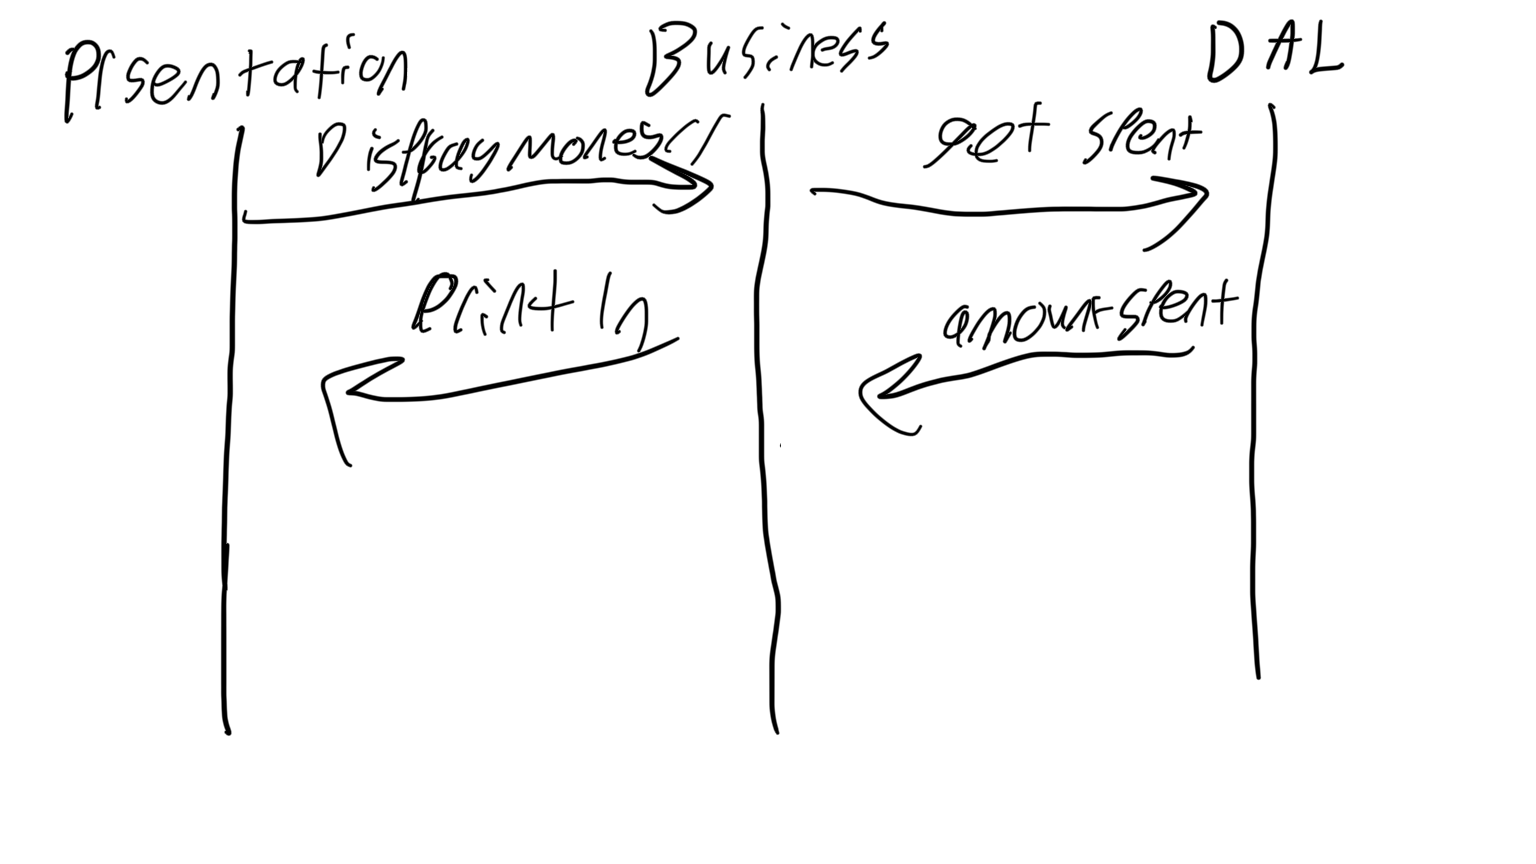 Prsentation
Business
DAL
Display money()
get spent
Println
amount spent